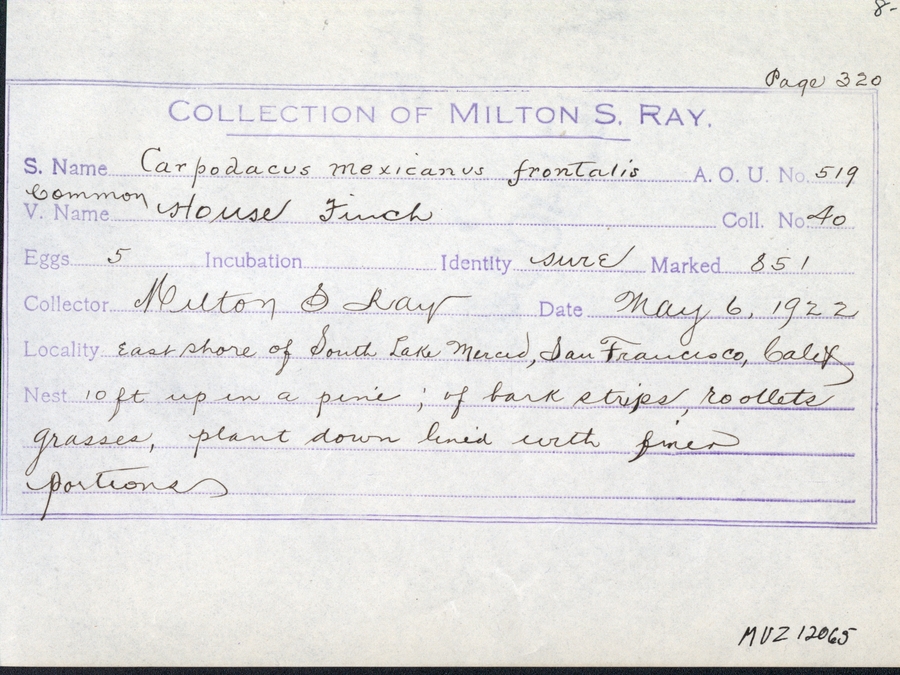 8-
Page 320
COLLECTION OF MILTON S. RAY.
S. Name Carpodacus mexicanus frontalis A. O. U. No. 519
Common
V. Name House Finch Coll. No. 40
Eggs 5 Incubation Identity sure Marked 851
Collector Milton S Ray Date May 6, 1922
Locality East shore of South Lake Merced, San Francisco, Calif
Nest 10 ft up in a pine; of bark strips, rootlets
grasses, plant down lined with finer
portions
MVZ 12065